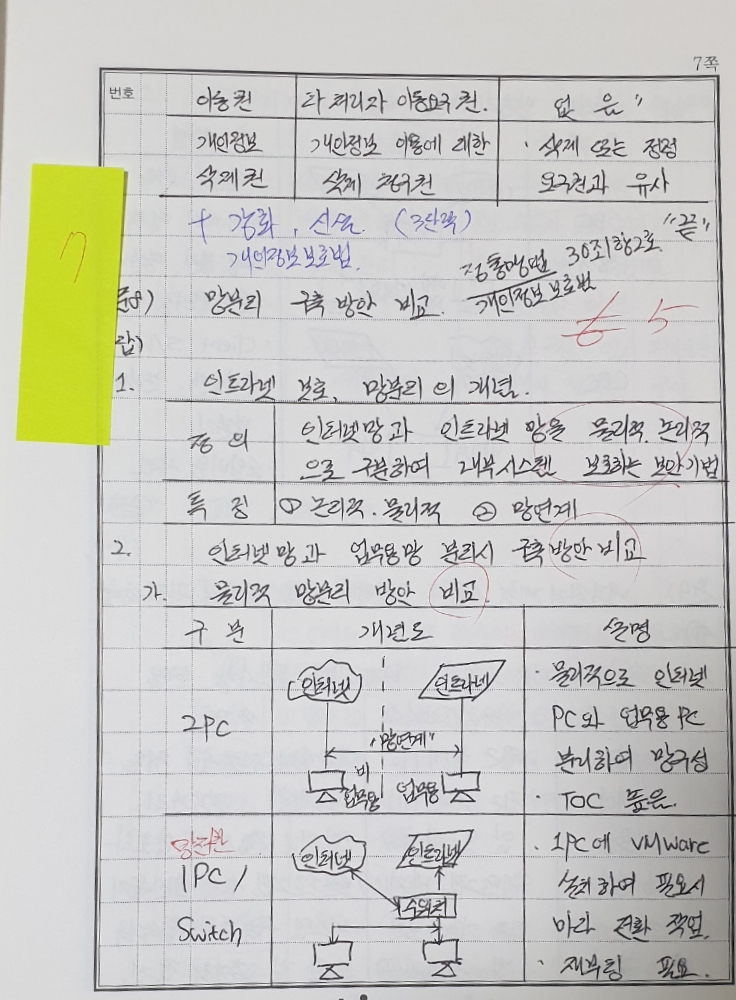 7쪽
번호
이동권 타 처리자 이동요구권. 없음"
개인정보 개인정보 이용에 대한 · 삭제 또는 정정
삭제권 삭제 청구권 요구권과 유사
+ 강화, 신설. (3단락) "끝"
개인정보보호법.
정통망법 30조1항2호
개인정보보호법
7
문8) 망분리 구축 방안 비교.
6 5
답)
1. 인트라넷 보호, 망분리의 개념.
정의 인터넷망과 인트라넷 망을 물리적, 논리적
으로 구분하여 내부시스템 보호하는 보안기법
특징 ① 논리적·물리적 ② 망연계
2. 인터넷망과 업무용망 분리시 구축방안 비교
가. 물리적 망분리 방안 비교.
구분 개념도 설명
인터넷 인트라넷 · 물리적으로 인터넷
2PC PC와 업무용PC
"망연계" 분리하여 망구성
비업무용 업무용 · TOC 높음.
망전환 인터넷 인트라넷 · 1PC에 VMware
1PC/ 설치하여 필요시
스위치
Switch 마다 전환 작업.
· 재부팅 필요.